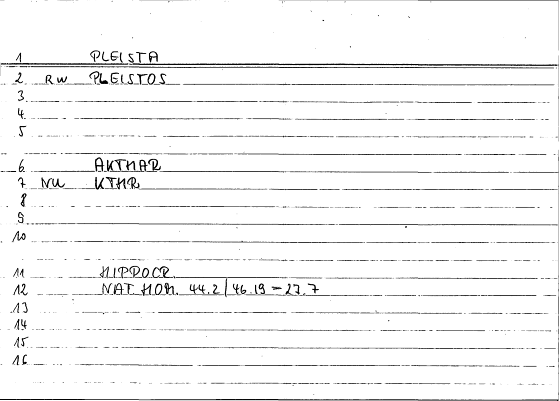 1 PLEISTA
2 RW PLEISTOS
3
4
5
6 AKTHAR
7 NU KTHR
8
9
10
11 HIPPOCR.
12 NAT. HOM. 44.2 | 46.19 - 27.7
13
14
15
16